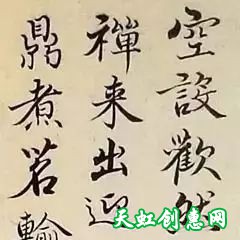 空設歡然
禪来出迎
鼎煮茗輸
天虹创惠网